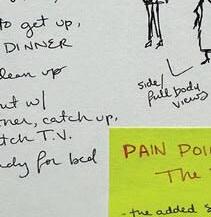 to get up,
DINNER
clean up
out w/
tner, catch up,
tch T.V.
ady for bed
side/
full body
views
PAIN POI
The
- the added s